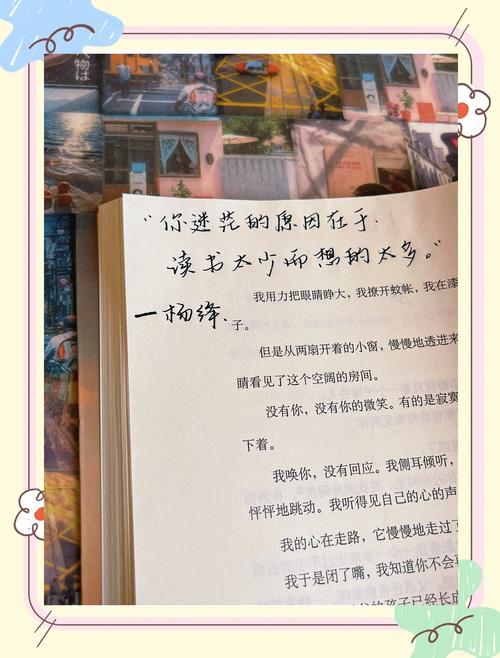 物は
“你迷茫的原因在于
读书太少而想的太多。”
—杨绛.
我用力把眼睛睁大，我撩开蚊帐，我在漆
子。
但是从两扇开着的小窗，慢慢地透进来
睛看见了这个空阔的房间。
没有你，没有你的微笑。有的是寂寞
下着。
我唤你，没有回应。我侧耳倾听，
怦怦地跳动。我听得见自己的心的声
我的心在走路，它慢慢地走过了
我于是闭了嘴，我知道你不会再
的孩子已经长成